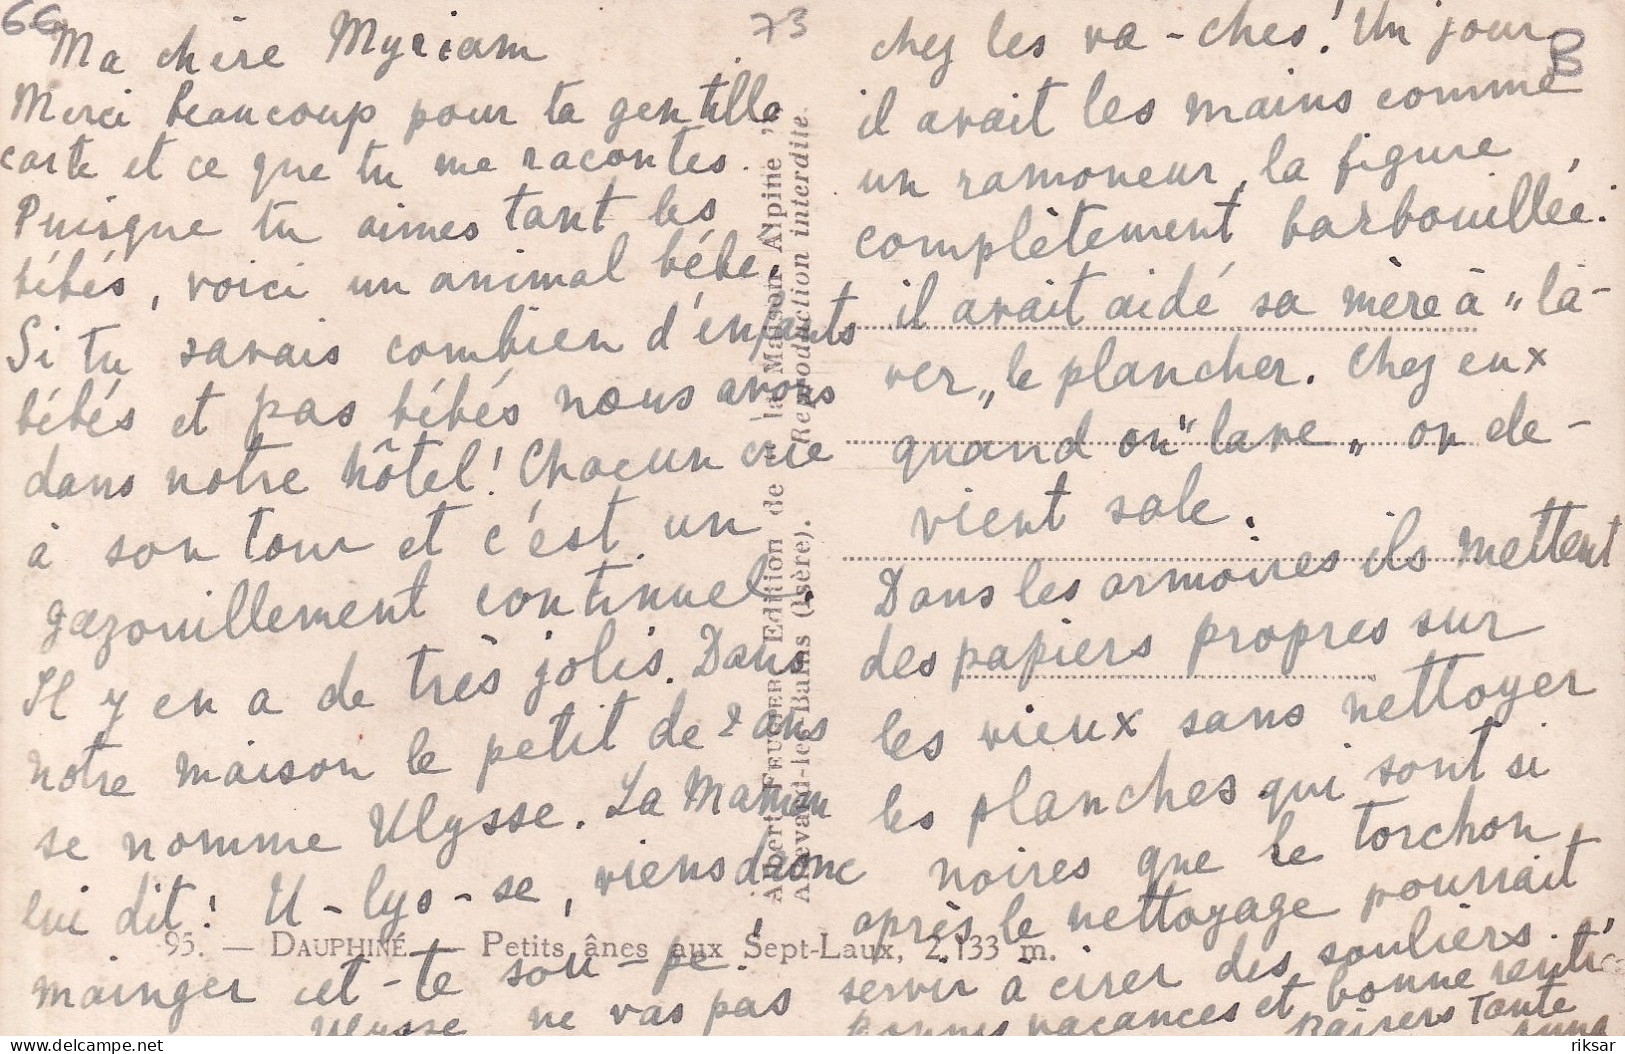 66
73
B
Ma chère Myriam
Merci beaucoup pour ta gentille
carte et ce que tu me racontes.
Puisque tu aimes tant les
bébés, voici un animal bébé.
Si tu savais combien d'enfants
bébés et pas bébés nous avons
dans notre hôtel! Chacun crie
à son tour et c'est un
gazouillement continuel.
Il y en a de très jolis. Dans
notre maison le petit de 2 ans
se nomme Ulysse. La Maman
lui dit: U-lys-se, viens donc
mainger cet-te sou-pe!
Ulysse ne vas pas
chez les va-ches! Un jour
il avait les mains comme
un ramoneur, la figure
complètement barbouillée.
il avait aidé sa mère à "la-
ver" le plancher. Chez eux
quand on "lave" on de-
vient sale.
Dans les armoires ils mettent
des papiers propres sur
les vieux sans nettoyer
les planches qui sont si
noires que le torchon
après le nettoyage pourrait
servir à cirer des souliers.
Bonnes vacances et bonne rentr
Baisers Tante
Anna
95. — DAUPHINÉ — Petits ânes aux Sept-Laux, 2.133 m.
Albert FEUGIER, Edition de "la Maison Alpine"
Allevard-les-Bains (Isère). Reproduction interdite.
riksar